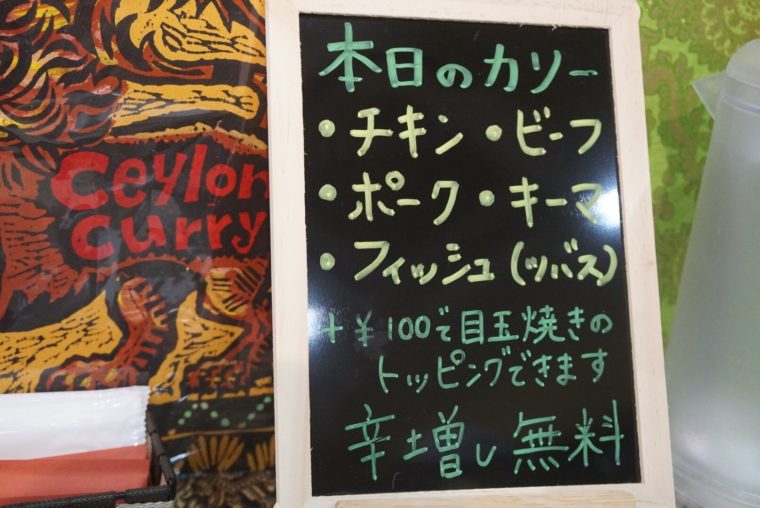 Ceylon
curry
本日のカリー
・チキン・ビーフ
・ポーク・キーマ
・フィッシュ(ツバス)
+¥100で目玉焼きの
トッピングできます
辛増し無料